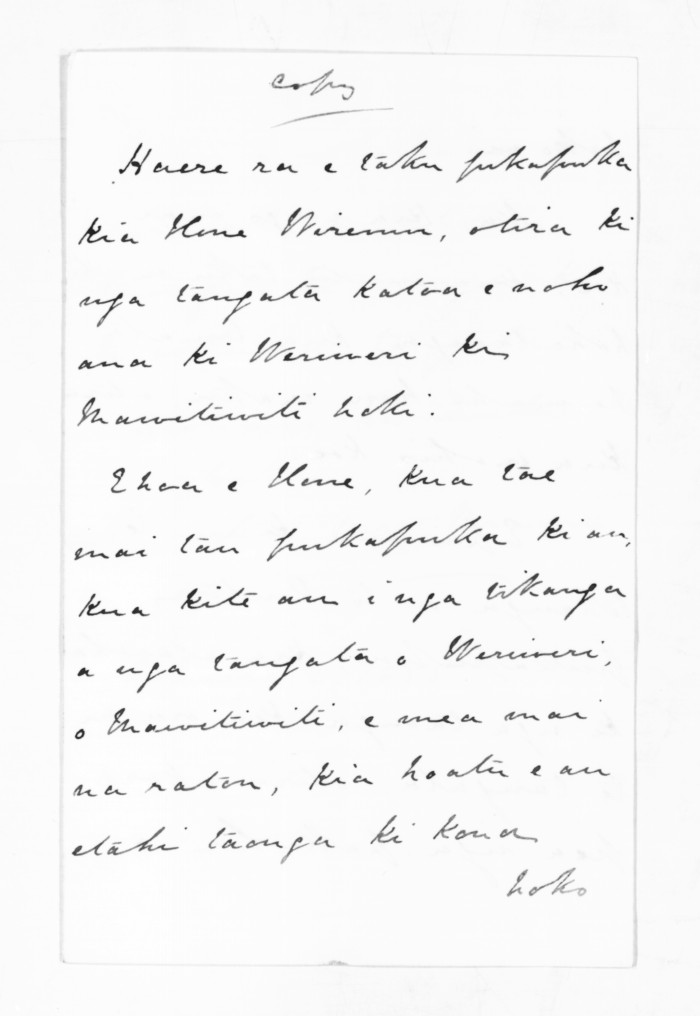 copy
Haere ra e taku pukapuka
Kia Hone Wiremu, otira ki
nga tangata katoa e noho
ana ki Weriweri ki
Mawitiwiti hoki.
E hoa e Hone, Kua tae
mai tau pukapuka ki au,
Kua kite au i nga tikanga
a nga tangata o Weriweri,
o Mawitiwiti, e mea mai
na ratou, Kia hoatu e au
etahi taonga ki kona
hoko